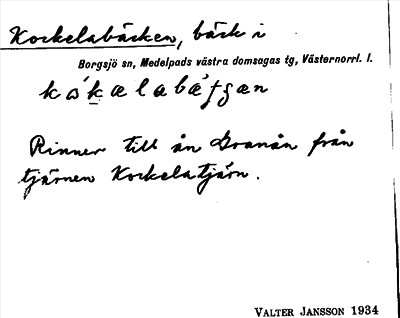 Korkelabäcken, bäck i
Borgsjö sn, Medelpads västra domsagas tg, Västernorrl. l.
Rinner till ån Granån från
tjärnen Korkelatjärn.
VALTER JANSSON 1934